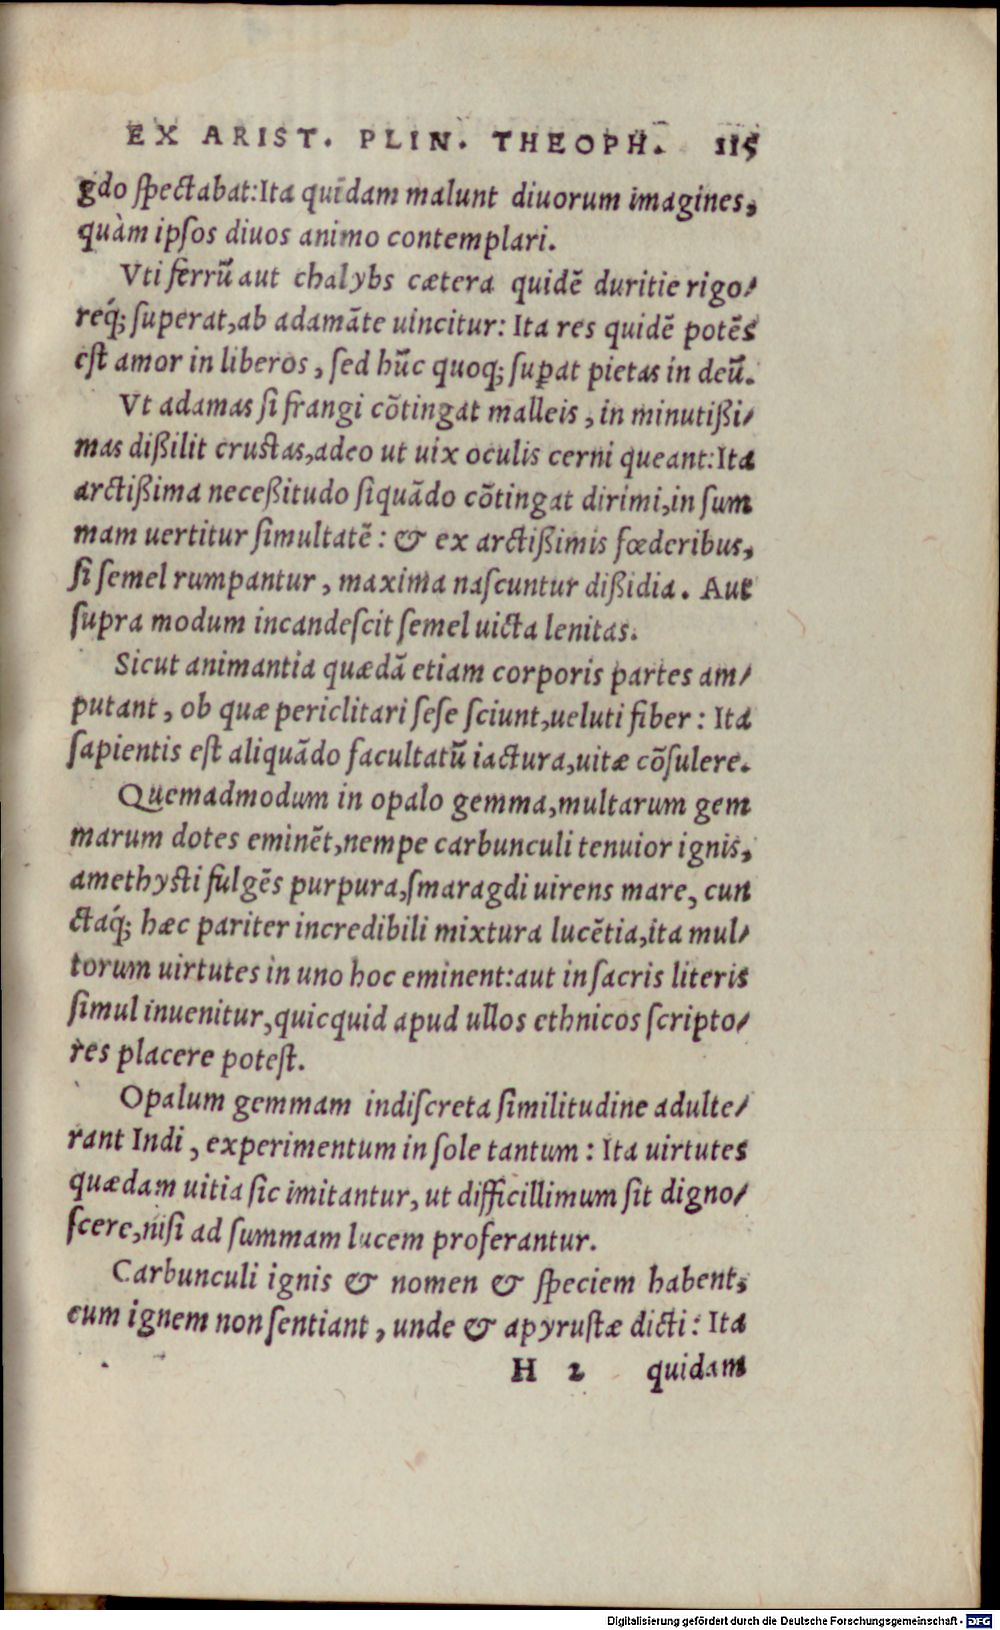 EX ARIST. PLIN. THEOPH. 115
gdo ſpectabat:Ita quidam malunt diuorum imagines,
quàm ipſos diuos animo contemplari.
Vti ferrũ aut chalybs cætera quidẽ duritie rigo⸗
req́; ſuperat,ab adamãte uincitur: Ita res quidẽ potẽs
eſt amor in liberos, ſed hũc quoq; ſuꝑat pietas in deũ.
Vt adamas ſi frangi cõtingat malleis, in minutißi⸗
mas dißilit cruſtas,adeo ut uix oculis cerni queant:Ita
arctißima neceßitudo ſiquãdo cõtingat dirimi,in ſum
mam uertitur ſimultatẽ: & ex arctißimis fœderibus,
ſi ſemel rumpantur, maxima naſcuntur dißidia. Aut
ſupra modum incandeſcit ſemel uicta lenitas.
Sicut animantia quædã etiam corporis partes am⸗
putant, ob quæ periclitari ſeſe ſciunt,ueluti fiber: Ita
ſapientis eſt aliquãdo facultatũ iactura,uitæ cõſulere.
Quemadmodum in opalo gemma,multarum gem
marum dotes eminẽt,nempe carbunculi tenuior ignis,
amethyſti fulgẽs purpura,ſmaragdi uirens mare, cun
ctaq́; hæc pariter incredibili mixtura lucẽtia,ita mul⸗
torum uirtutes in uno hoc eminent:aut in ſacris literis
ſimul inuenitur,quicquid apud ullos ethnicos ſcripto⸗
res placere poteſt.
Opalum gemmam indiſcreta ſimilitudine adulte⸗
rant Indi, experimentum in ſole tantum: Ita uirtutes
quædam uitia ſic imitantur, ut difficillimum ſit digno⸗
ſcere,niſi ad ſummam lucem proferantur.
Carbunculi ignis & nomen & ſpeciem habent,
cum ignem non ſentiant, unde & apyruſtæ dicti: Ita
H 2 quidam
Digitalisierung gefördert durch die Deutsche Forschungsgemeinschaft - DFG